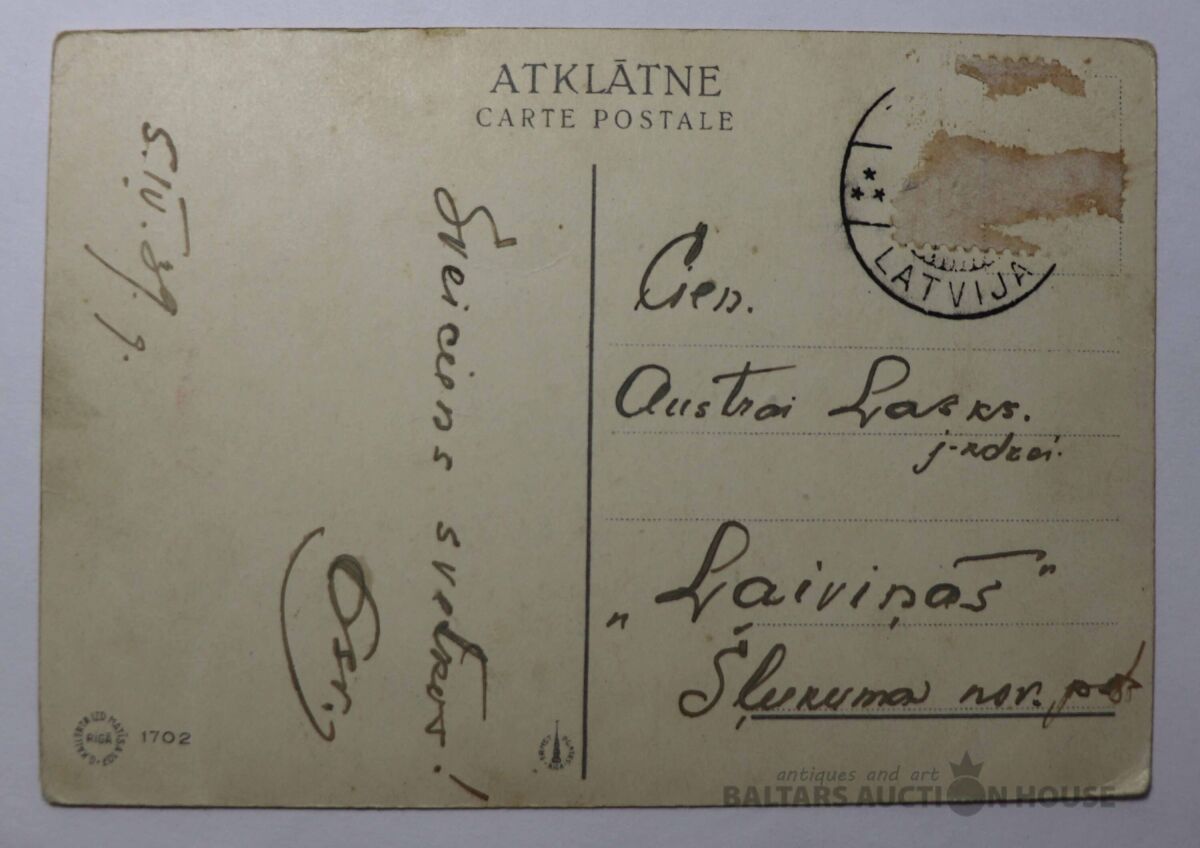 ATKLĀTNE
CARTE POSTALE
5. IV. 39. g.
Sveiciens svētkos!
LATVIJA
Cien.
Austrai Lasks.
j-kdzei.
„Laiviņās"
Šļukuma nov. pst.
RĪGĀ
1702
antiques and art
BALTARS AUCTION HOUSE